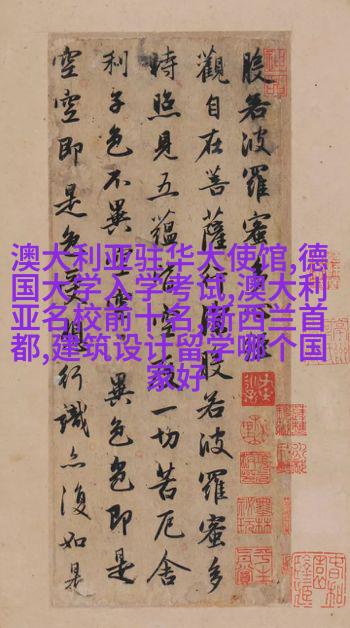 澳大利亚驻华大使馆,德
国大学入学考试,澳大利
亚名校前十名,新西兰首
都,建筑设计留学哪个国
家好
般若波羅蜜多心經
觀自在菩薩行深般若波羅蜜多
時照見五蘊皆空度一切苦厄舍
利子色不異空空不異色色即是
空空即是色受想行識亦復如是